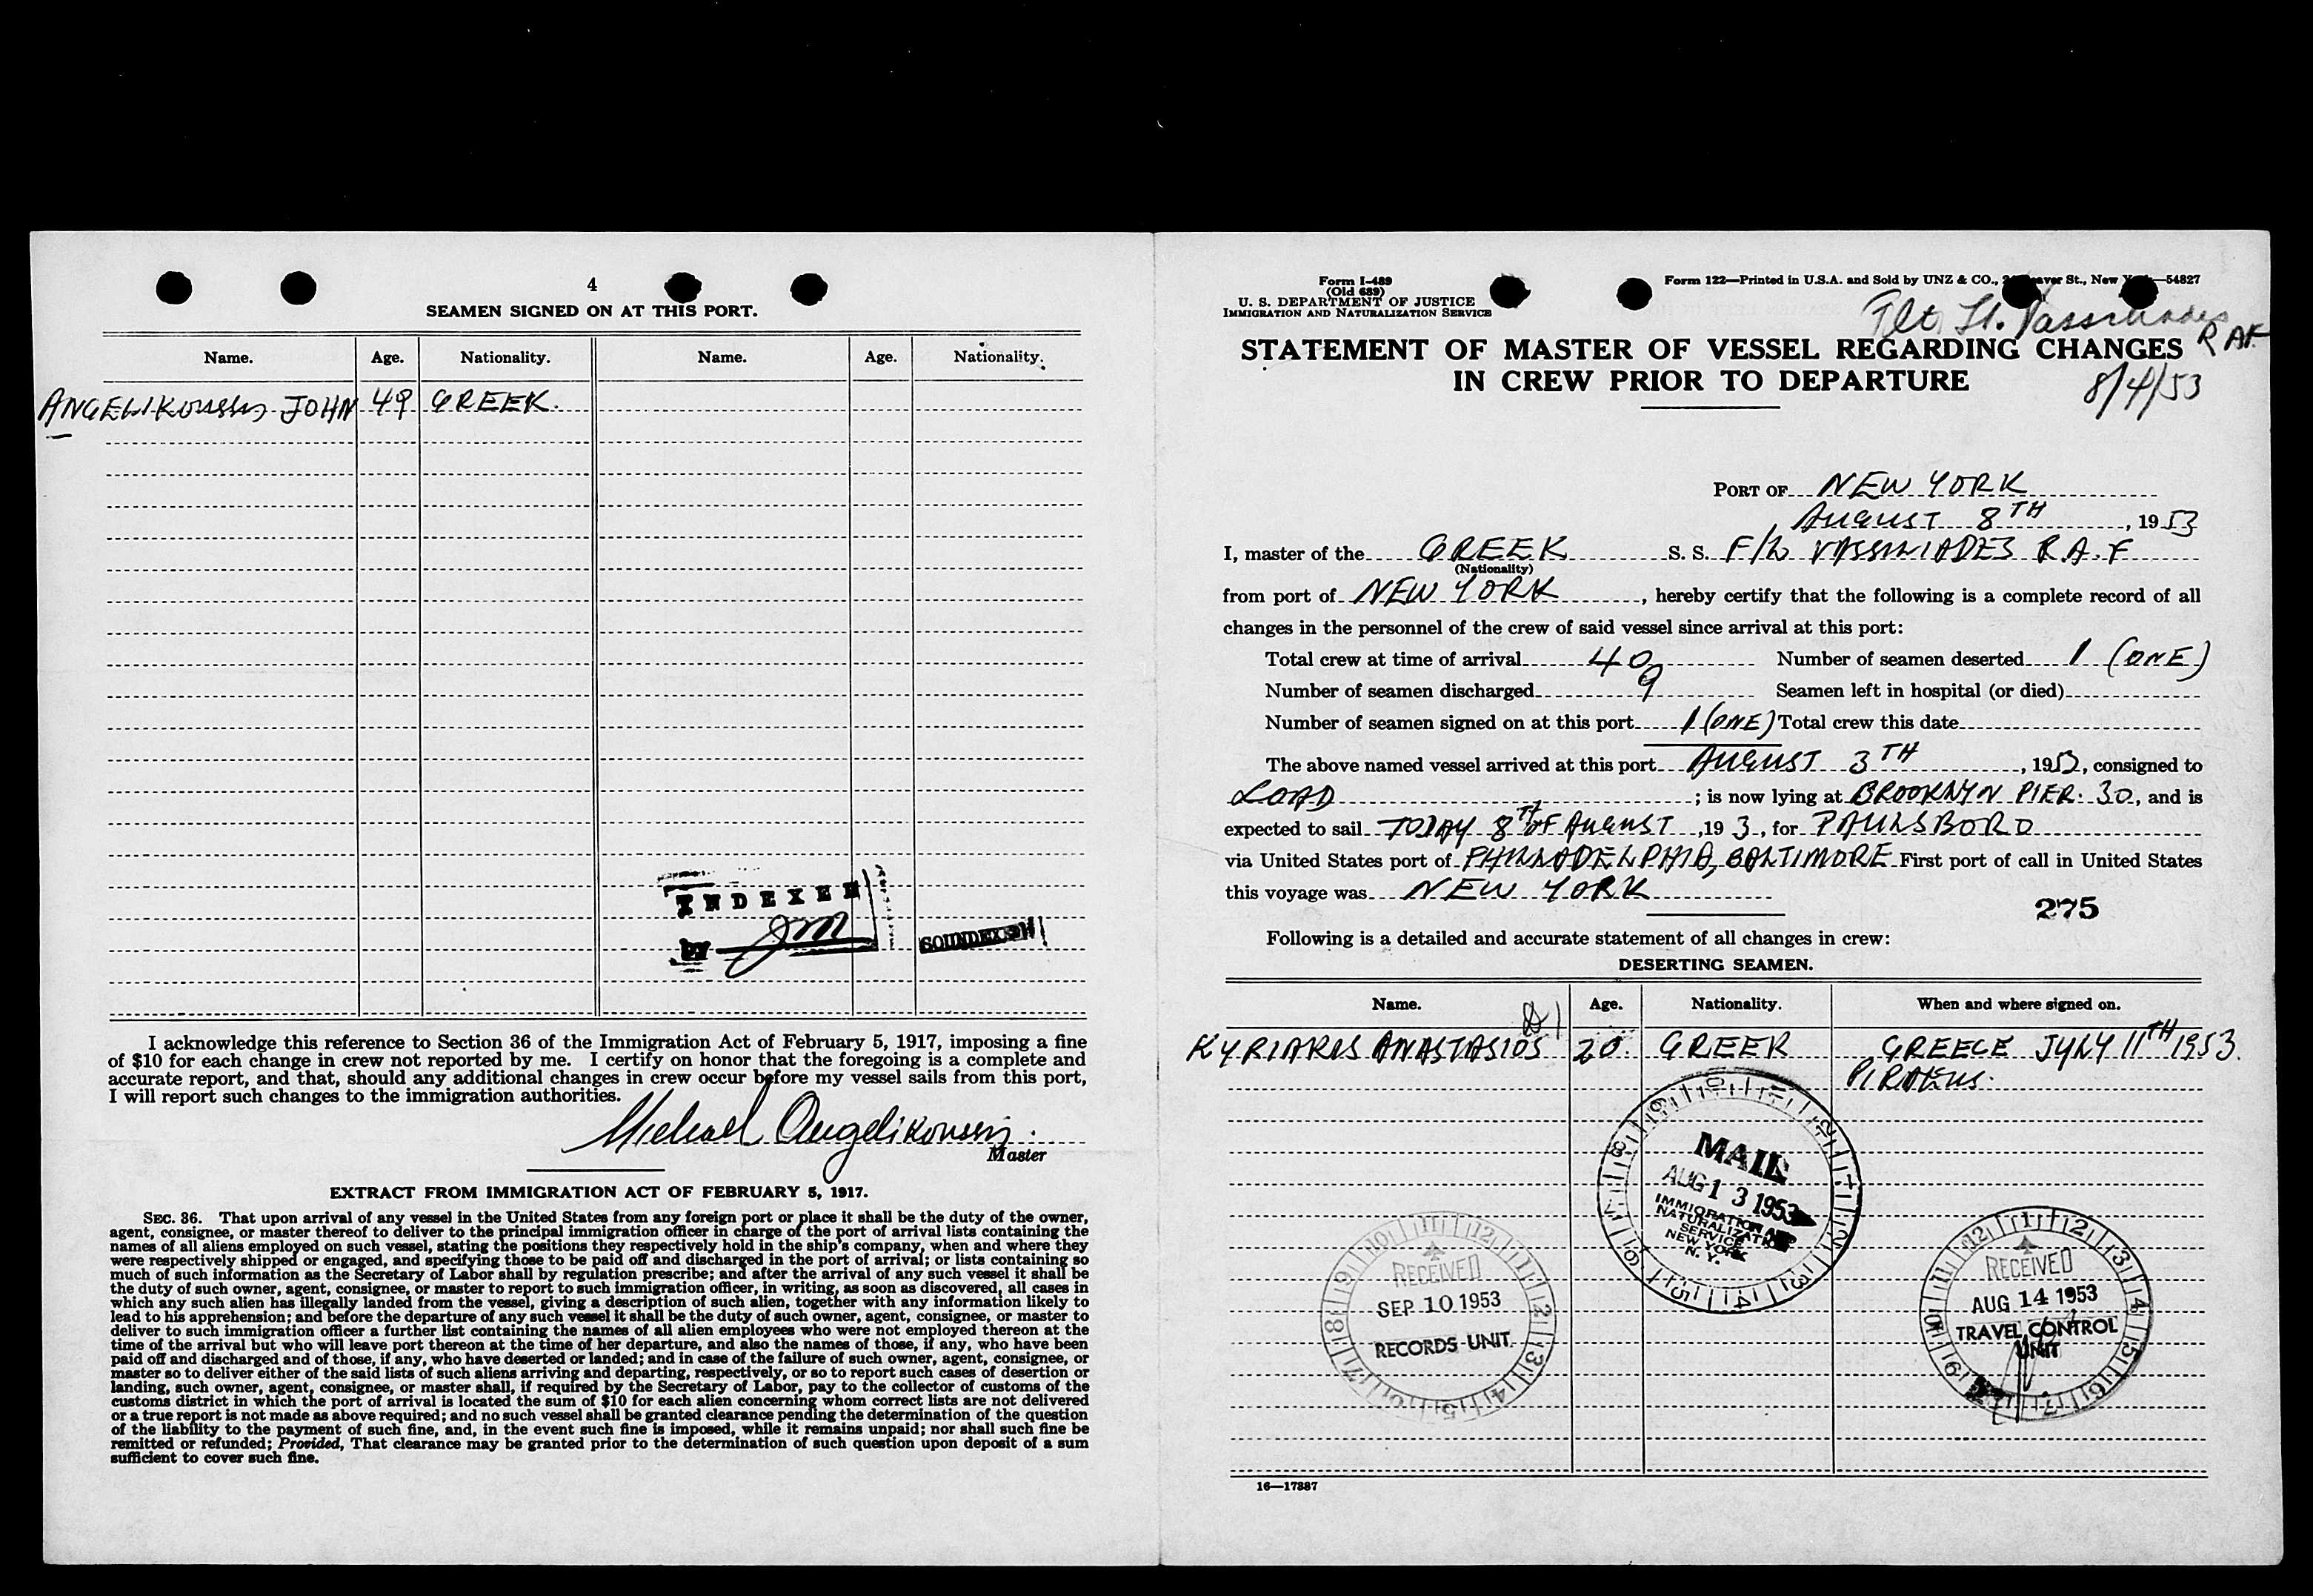 4
SEAMEN SIGNED ON AT THIS PORT.
Name. Age. Nationality. Name. Age. Nationality.
ANGELIKOUSSIS JOHN 49 GREEK.
INDEXED
BY JM
SOUNDEXED
I acknowledge this reference to Section 36 of the Immigration Act of February 5, 1917, imposing a fine
of $10 for each change in crew not reported by me. I certify on honor that the foregoing is a complete and
accurate report, and that, should any additional changes in crew occur before my vessel sails from this port,
I will report such changes to the immigration authorities.
Michael Angelikoussis
Master
EXTRACT FROM IMMIGRATION ACT OF FEBRUARY 5, 1917.
SEC. 36. That upon arrival of any vessel in the United States from any foreign port or place it shall be the duty of the owner,
agent, consignee, or master thereof to deliver to the principal immigration officer in charge of the port of arrival lists containing the
names of all aliens employed on such vessel, stating the positions they respectively hold in the ship's company, when and where they
were respectively shipped or engaged, and specifying those to be paid off and discharged in the port of arrival; or lists containing so
much of such information as the Secretary of Labor shall by regulation prescribe; and after the arrival of any such vessel it shall be
the duty of such owner, agent, consignee, or master to report to such immigration officer, in writing, as soon as discovered, all cases in
which any such alien has illegally landed from the vessel, giving a description of such alien, together with any information likely to
lead to his apprehension; and before the departure of any such vessel it shall be the duty of such owner, agent, consignee, or master to
deliver to such immigration officer a further list containing the names of all alien employees who were not employed thereon at the
time of the arrival but who will leave port thereon at the time of her departure, and also the names of those, if any, who have been
paid off and discharged and of those, if any, who have deserted or landed; and in case of the failure of such owner, agent, consignee, or
master so to deliver either of the said lists of such aliens arriving and departing, respectively, or so to report such cases of desertion or
landing, such owner, agent, consignee, or master shall, if required by the Secretary of Labor, pay to the collector of customs of the
customs district in which the port of arrival is located the sum of $10 for each alien concerning whom correct lists are not delivered
or a true report is not made as above required; and no such vessel shall be granted clearance pending the determination of the question
of the liability to the payment of such fine, and, in the event such fine is imposed, while it remains unpaid; nor shall such fine be
remitted or refunded; Provided, That clearance may be granted prior to the determination of such question upon deposit of a sum
sufficient to cover such fine.
Form I-489
(Old 689)
U. S. DEPARTMENT OF JUSTICE
IMMIGRATION AND NATURALIZATION SERVICE
Form 122—Printed in U.S.A. and Sold by UNZ & CO., St., New 54827
Flt. Lt. Vassiliades
RAF
8/4/53
STATEMENT OF MASTER OF VESSEL REGARDING CHANGES
IN CREW PRIOR TO DEPARTURE
PORT OF NEW YORK
AUGUST 8TH, 1953
I, master of the GREEK S. S. F/L VASSILIADES R.A.F
(Nationality)
from port of NEW YORK, hereby certify that the following is a complete record of all
changes in the personnel of the crew of said vessel since arrival at this port:
Total crew at time of arrival 40 Number of seamen deserted 1 (ONE)
Number of seamen discharged 9 Seamen left in hospital (or died)
Number of seamen signed on at this port 1 (ONE) Total crew this date
The above named vessel arrived at this port AUGUST 3TH, 1953, consigned to
LOAD; is now lying at BROOKLYN PIER. 30, and is
expected to sail TODAY 8TH OF AUGUST, 19 3, for PAULSBORO
via United States port of PHILLADELPHIA, BALTIMORE First port of call in United States
this voyage was NEW YORK
275
Following is a detailed and accurate statement of all changes in crew:
DESERTING SEAMEN.
Name. Age. Nationality. When and where signed on.
KYRIAKAS ANASTASIOS 20. GREEK GREECE JYLY 11TH 1953.
PIRAEUS.
MAIL
AUG 13 1953
IMMIGRATION AND
NATURALIZATION
SERVICE
NEW YORK
N. Y.
RECEIVED
SEP 10 1953
RECORDS UNIT
RECEIVED
AUG 14 1953
TRAVEL CONTROL
UNIT
16—17887